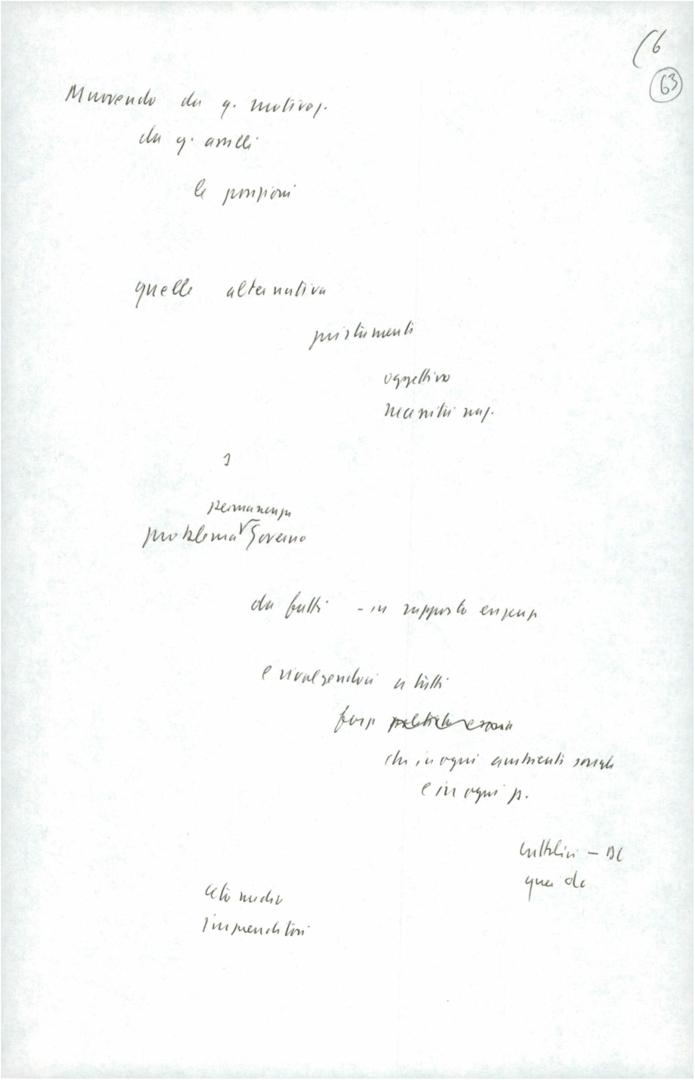 (6
63
Muovendo da q. motivaz.
da q. anelli
le posizioni
quelle alternativa
spostamenti
oggettivo
necessità naz.
permanenza
problema Governo
da fatti - in rapporto esigenze
e rivolgendoci a tutti
forze politiche
che in ogni ambienti sociale
e in ogni p.
cattolici - DC
quei de
Ceto medio
Imprenditori